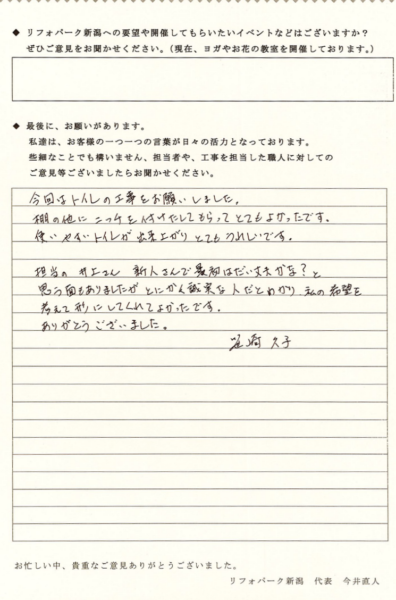 ◆ リフォパーク新潟への要望や開催してもらいたいイベントなどはございますか?
ぜひご意見をお聞かせください。(現在、ヨガやお花の教室を開催しております。)
◆ 最後に、お願いがあります。
私達は、お客様の一つ一つの言葉が日々の活力となっております。
些細なことでも構いません、担当者や、工事を担当した職人に対しての
ご意見等ございましたらお聞かせください。
今回はトイレの工事をお願いしました。
棚の他にニッチを付けたしてもらってとてもよかったです。
使いやすいトイレが出来上がりとてもうれしいです。
担当の井上さん 新人さんで最初はだい丈夫かな?と
思う面もありましたがとにかく誠実な人だとわかり 私の希望を
考えて形にしてくれてよかったです。
ありがとうございました。
笹崎 久子
お忙しい中、貴重なご意見ありがとうございました。
リフォパーク新潟 代表 今井直人